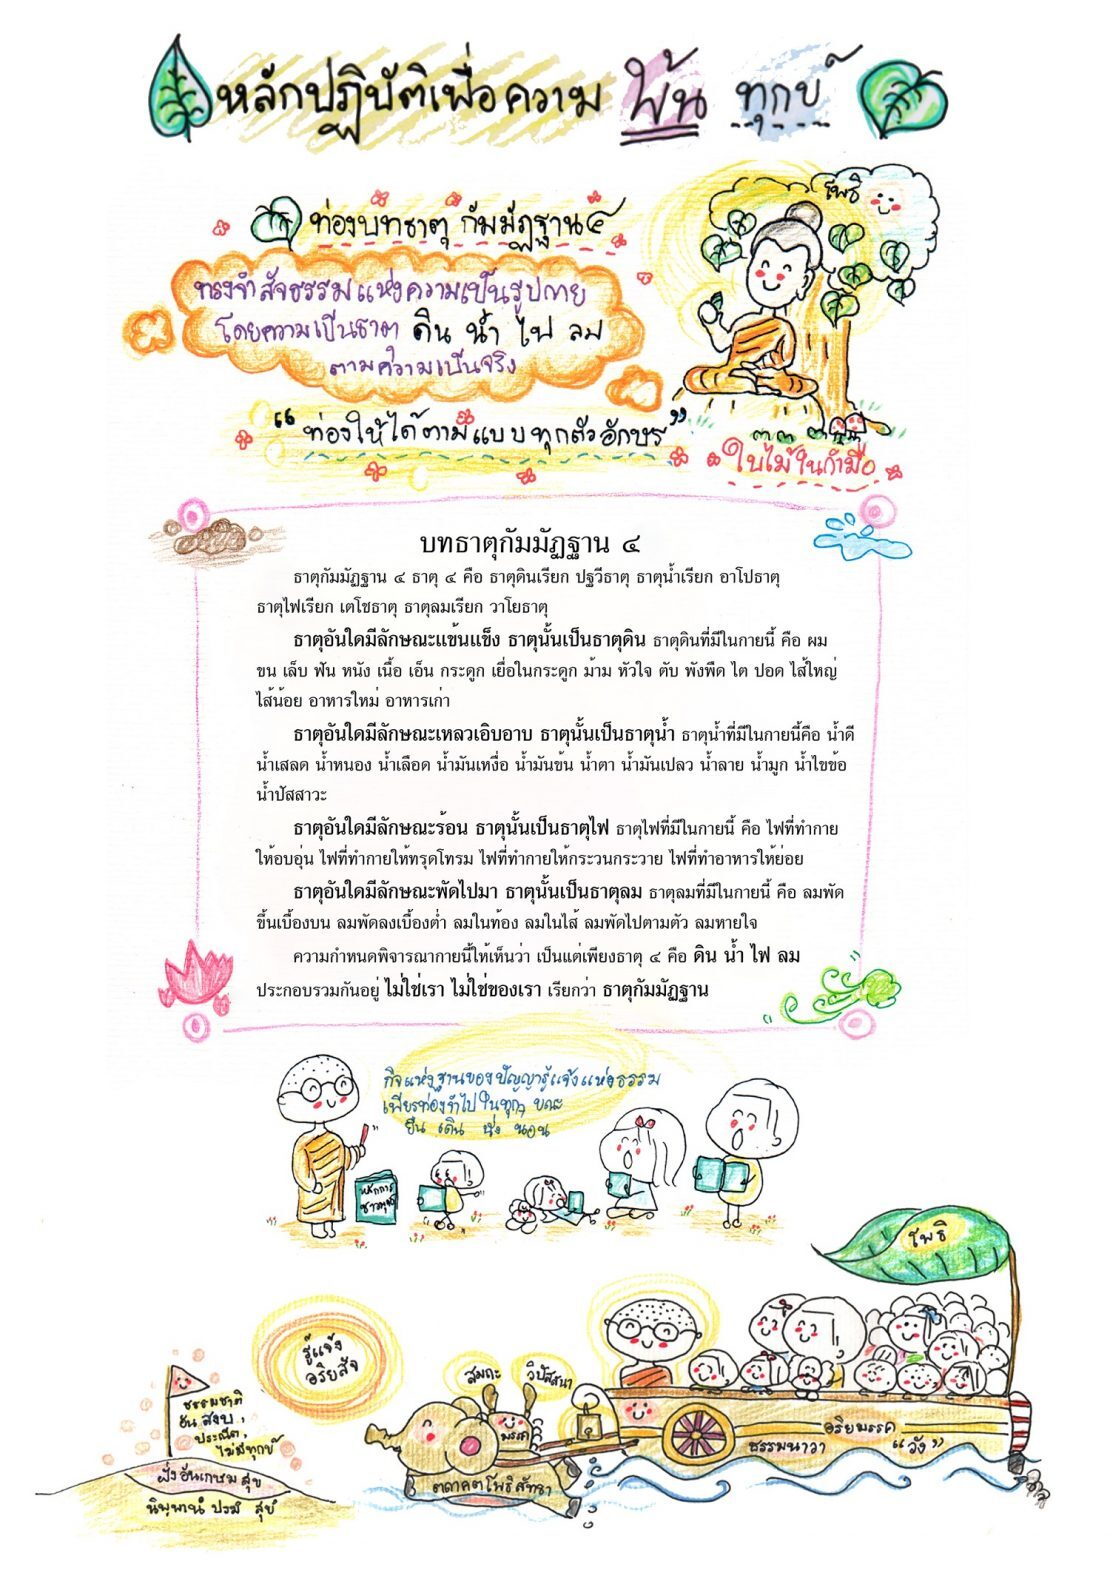 หลักปฏิบัติเพื่อความ พ้น ทุกข์
โพธิ
ท่องบทธาตุ กัมมัฏฐาน ๔
ทรงจำสัจธรรมแห่งความเป็นรูปกาย
โดยความเป็นธาตุ ดิน น้ำ ไฟ ลม
ตามความเป็นจริง
“ ท่องให้ได้ตามแบบทุกตัวอักษร ”
ใบไม้ในกำมือ
บทธาตุกัมมัฏฐาน ๔
ธาตุกัมมัฏฐาน ๔ ธาตุ ๔ คือ ธาตุดินเรียก ปฐวีธาตุ ธาตุน้ำเรียก อาโปธาตุ
ธาตุไฟเรียก เตโชธาตุ ธาตุลมเรียก วาโยธาตุ
ธาตุอันใดมีลักษณะแข้นแข็ง ธาตุนั้นเป็นธาตุดิน ธาตุดินที่มีในกายนี้ คือ ผม
ขน เล็บ ฟัน หนัง เนื้อ เอ็น กระดูก เยื่อในกระดูก ม้าม หัวใจ ตับ พังผืด ไต ปอด ไส้ใหญ่
ไส้น้อย อาหารใหม่ อาหารเก่า
ธาตุอันใดมีลักษณะเหลวเอิบอาบ ธาตุนั้นเป็นธาตุน้ำ ธาตุน้ำที่มีในกายนี้คือ น้ำดี
น้ำเสลด น้ำหนอง น้ำเลือด น้ำมันเหงื่อ น้ำมันข้น น้ำตา น้ำมันเปลว น้ำลาย น้ำมูก น้ำไขข้อ
น้ำปัสสาวะ
ธาตุอันใดมีลักษณะร้อน ธาตุนั้นเป็นธาตุไฟ ธาตุไฟที่มีในกายนี้ คือ ไฟที่ทำกาย
ให้อบอุ่น ไฟที่ทำกายให้ทรุดโทรม ไฟที่ทำกายให้กระวนกระวาย ไฟที่ทำอาหารให้ย่อย
ธาตุอันใดมีลักษณะพัดไปมา ธาตุนั้นเป็นธาตุลม ธาตุลมที่มีในกายนี้ คือ ลมพัด
ขึ้นเบื้องบน ลมพัดลงเบื้องต่ำ ลมในท้อง ลมในไส้ ลมพัดไปตามตัว ลมหายใจ
ความกำหนดพิจารณากายนี้ให้เห็นว่า เป็นแต่เพียงธาตุ ๔ คือ ดิน น้ำ ไฟ ลม
ประกอบรวมกันอยู่ ไม่ใช่เรา ไม่ใช่ของเรา เรียกว่า ธาตุกัมมัฏฐาน
กิจแห่งฐานของปัญญารู้แจ้งแห่งธรรม
เพียรท่องจำไปในทุกๆ ขณะ
ยืน เดิน นั่ง นอน
หลักการ
ชาวพุทธ
โพธิ
รู้แจ้ง
อริยสัจ
สมถะ
วิปัสสนา
มรรค
ธรรมชาติ
อัน สงบ,
ประณีต,
ไม่มีทุกข์
ฝั่งอันเกษม สุข
นิพฺพานํ ปรมํ สุขํ
ตถาคตโพธิสัทธา
อริยมรรค
ธรรมนาวา “วัง”